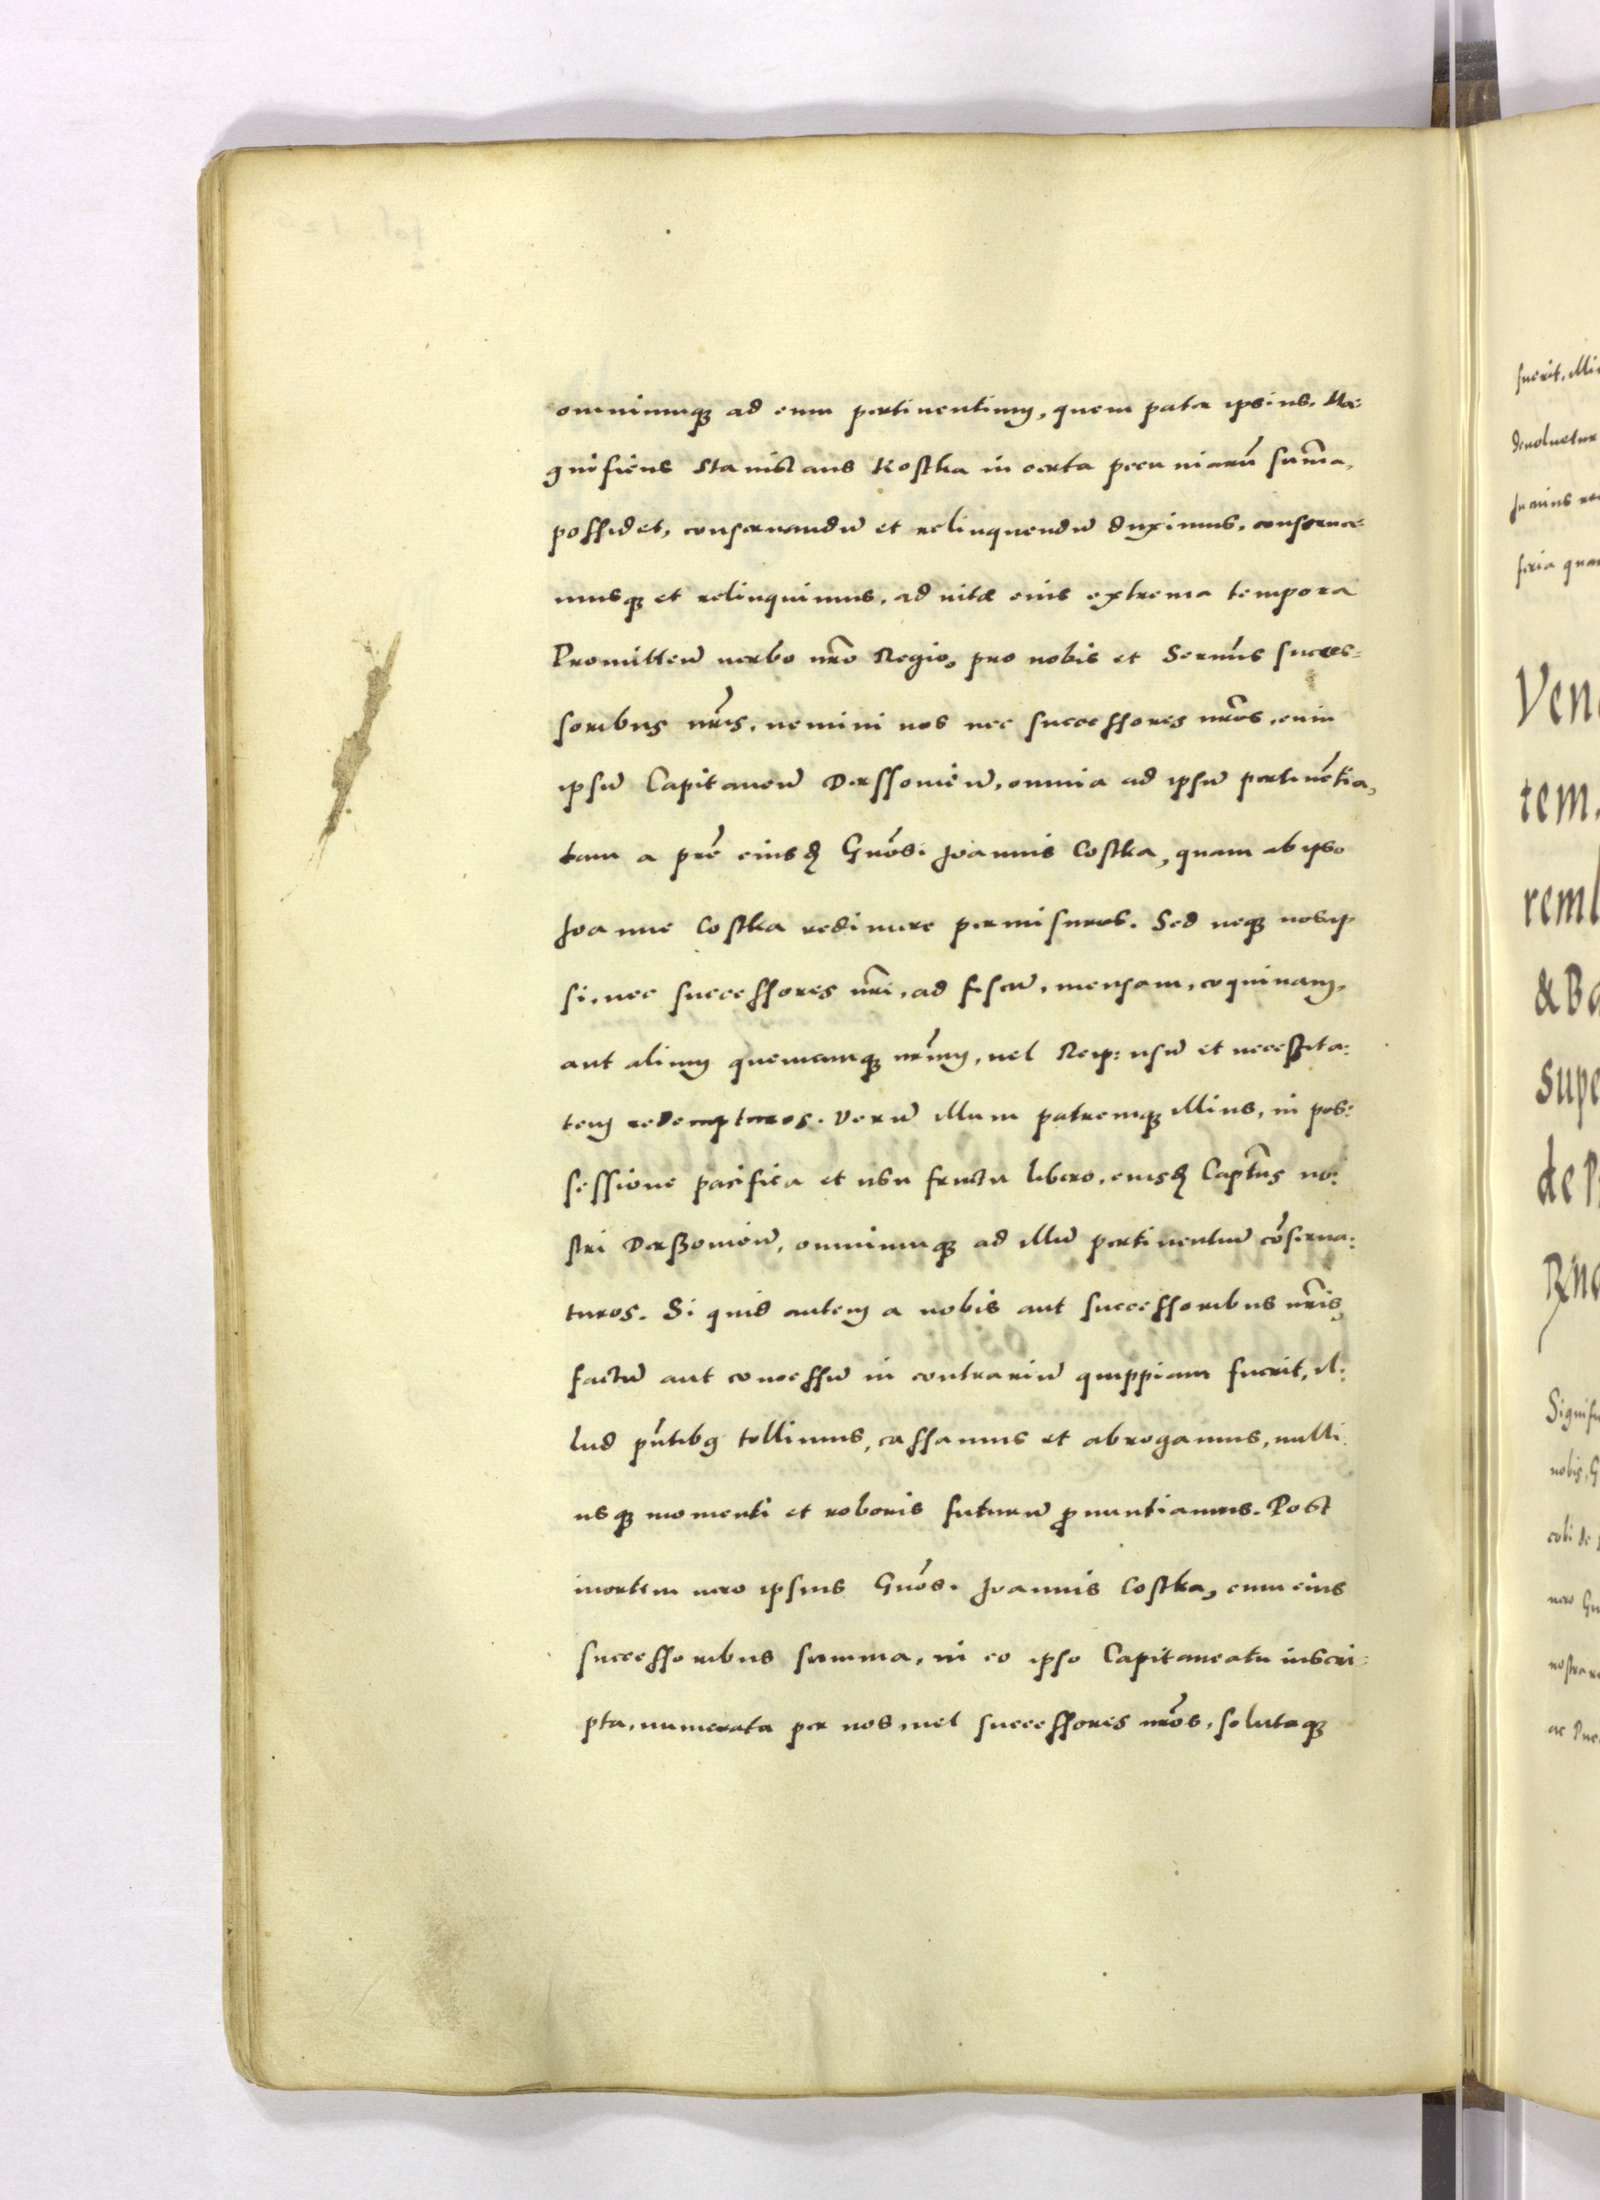 omniumq₃ ad eum pertinentium, quem pater ipsius. Ma-
gnificus Stanislaus Kostka in certa pecuniarū sum̄a,
possidet, conseruandū et relinquendū duximus, conserua-
musq₃ et relinquimus, ad vitæ eius extrema tempora
Promitten̄ verbo nr̄o Regio, pro nobis et Seren̄is succes-
soribus nr̄is, nemini nos nec successores nr̄os, eum
ipsū Capitaneū Derssouien̄, omnia ad ipsū pertinētia,
tam a pr̄e eiusđ Gn̄osi Joannis Costka, quam ab ipso
Joanne Costka redimere permisuros. Sed neq₃ nos ip
si, nec successores nr̄i, ad fiscū, mensam, coquinam,
aut alium quemcumq₃ nr̄um, vel Reip: vsū et necessita:
tem redempturos. Verū illum patremq₃ illius, in pos:
sessione pacifica et vsu fructu libero, eiusđ Capt̄us no:
stri Derssouien̄, omniumq₃ ad illū pertinentiū cōserua:
turos. Si quid autem a nobis aut successoribus nr̄is
factū aut concessū in contrariū quippiam fuerit, il:
lud pn̄tibꝰ tollimus, cassamus et abrogamus, nulli
usq₃ momenti et roboris futurū ꝓnuntiamus. Post
mortem vero ipsius Gn̄osi Joannis Costka, cum eius
successoribus summa, in eo ipso Capitaneatu inscri:
pta, numerata per nos, vel successores nr̄os, solutaq₃
fuerit, illi
deuoluetur
feria
Ven
tem,
reml
& Ba
supe
de
Signifi
nobis, G
ac